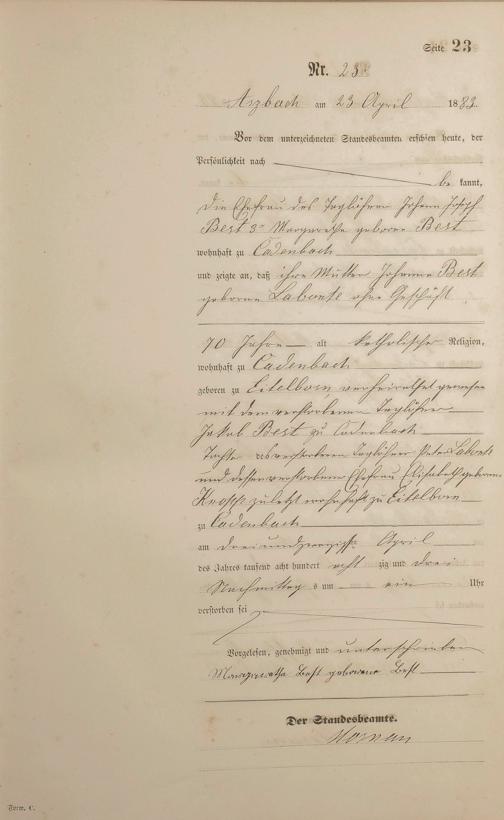 Seite 23
Nr. 23
Arzbach am 23 April 1883.
Vor dem unterzeichneten Standesbeamten erschien heute, der
Persönlichkeit nach
be kannt,
die Ehefrau des Taglöhner Johann Josef
Best 3r Margaretha geborene Best
wohnhaft zu Cadenbach
und zeigte an, daß ihre Mutter Johanna Best
geborene Labonte ohne Geschäft
70 Jahre alt katholischer Religion,
wohnhaft zu Cadenbach
geboren zu Eitelborn verheirathet gewesen
mit dem verstorbenen Taglöhner
Jakob Best zu Cadenbach
Tochter des verstorbenen Taglöhner Peter Labonte
und dessen verstorbene Ehefrau Elisabeth geborene
zuletzt wohnhaft zu Eitelborn
zu Cadenbach
am dreiundzwanzigsten April
des Jahres tausend acht hundert acht zig und drei
Nachmittag s um ein Uhr
verstorben sei
Vorgelesen, genehmigt und unterschrieben
Margaretha Best geborene Best
Der Standesbeamte.
Form. C.